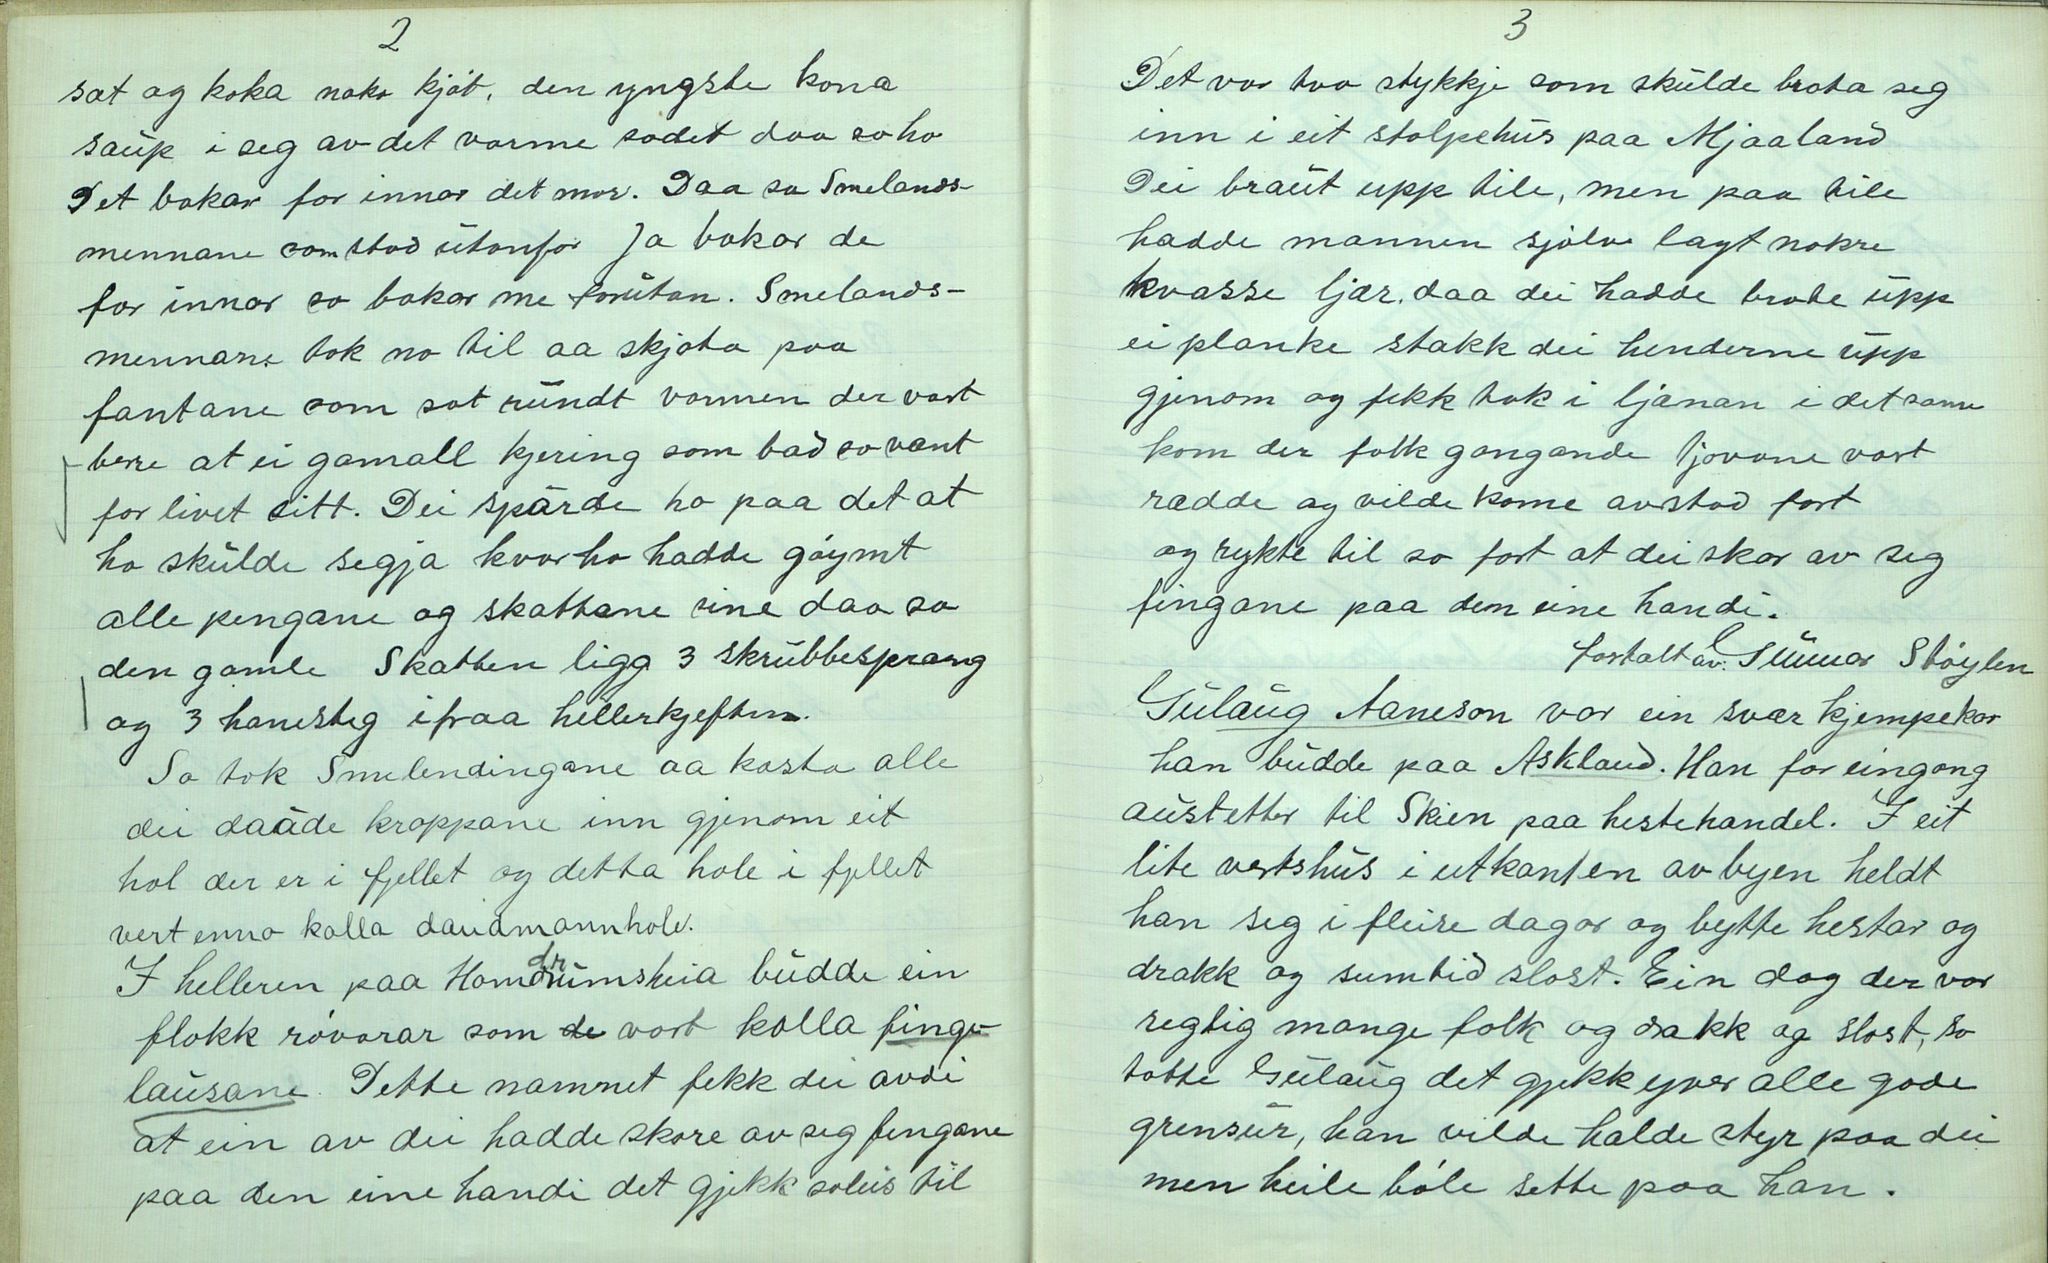 2
sat og koka noko kjöt, den yngste kona
saup i seg av det varme sodet daa sa ho
Det bakar for innar det mor. Daa sa Smelands-
mennane som stod utanfor Ja bakar de
for innar so bakar me forutan. Smelands-
mennane tok no til aa skjota paa
fantane som sat rundt varmen der vart
berre at ei gamall kjering som bad so vænt
for livet sitt. Dei sparde ho paa det at
ho skulde segja kvar ho hadde göymt
alle pengane og skattane sine daa sa
den gamle Skatten ligg 3 skrubbesprang
og 3 hanesteg ifraa hellerkjeften.
So tok Smelendingane aa kasta alle
dei daude kroppane inn gjenom eit
hol der er i fjellet og detta hole i fjellet
vert enno kalla daudmannhole.
I helleren paa Homdrumsheia budde ein
flokk rövarar som de vart kalla finge-
lausane. Dette namnet fekk dei avdi
at ein av dei hadde skore av seg fengane
paa den eine handi det gjekk soleis til
3
Det var tvo stykkje som skulde brota seg
inn i eit stolpehus paa Mjaaland
Dei braut upp tile, men paa tile
hadde mannen sjølve lagt nokre
kvasse ljær. daa dei hadde brote upp
ei planke stakk dei henderne upp
gjenom og fekk tak i ljænan i det same
kom der folk gangande ljovane vart
rædde og vilde kome avstad fort
og rykte til so fort at dei skar av seg
fingane paa den eine handi.
fortalt av. Gunnar Stöylen
Gulaug Aaneson var ein svær kjempekar
han budde paa Askland. Han for eingong
austetter til Skien paa hestehandel. I eit
lite vertshus i utkanten av byen heldt
han seg i fleire dagar og bytte hestar og
drakk og sumtid slost. Ein dag der var
regtig mange folk og drakk og slost, so
totte Gulaug det gjekk yver alle gode
grensur, han vilde halde styr paa dei
men heile böle sette paa han.